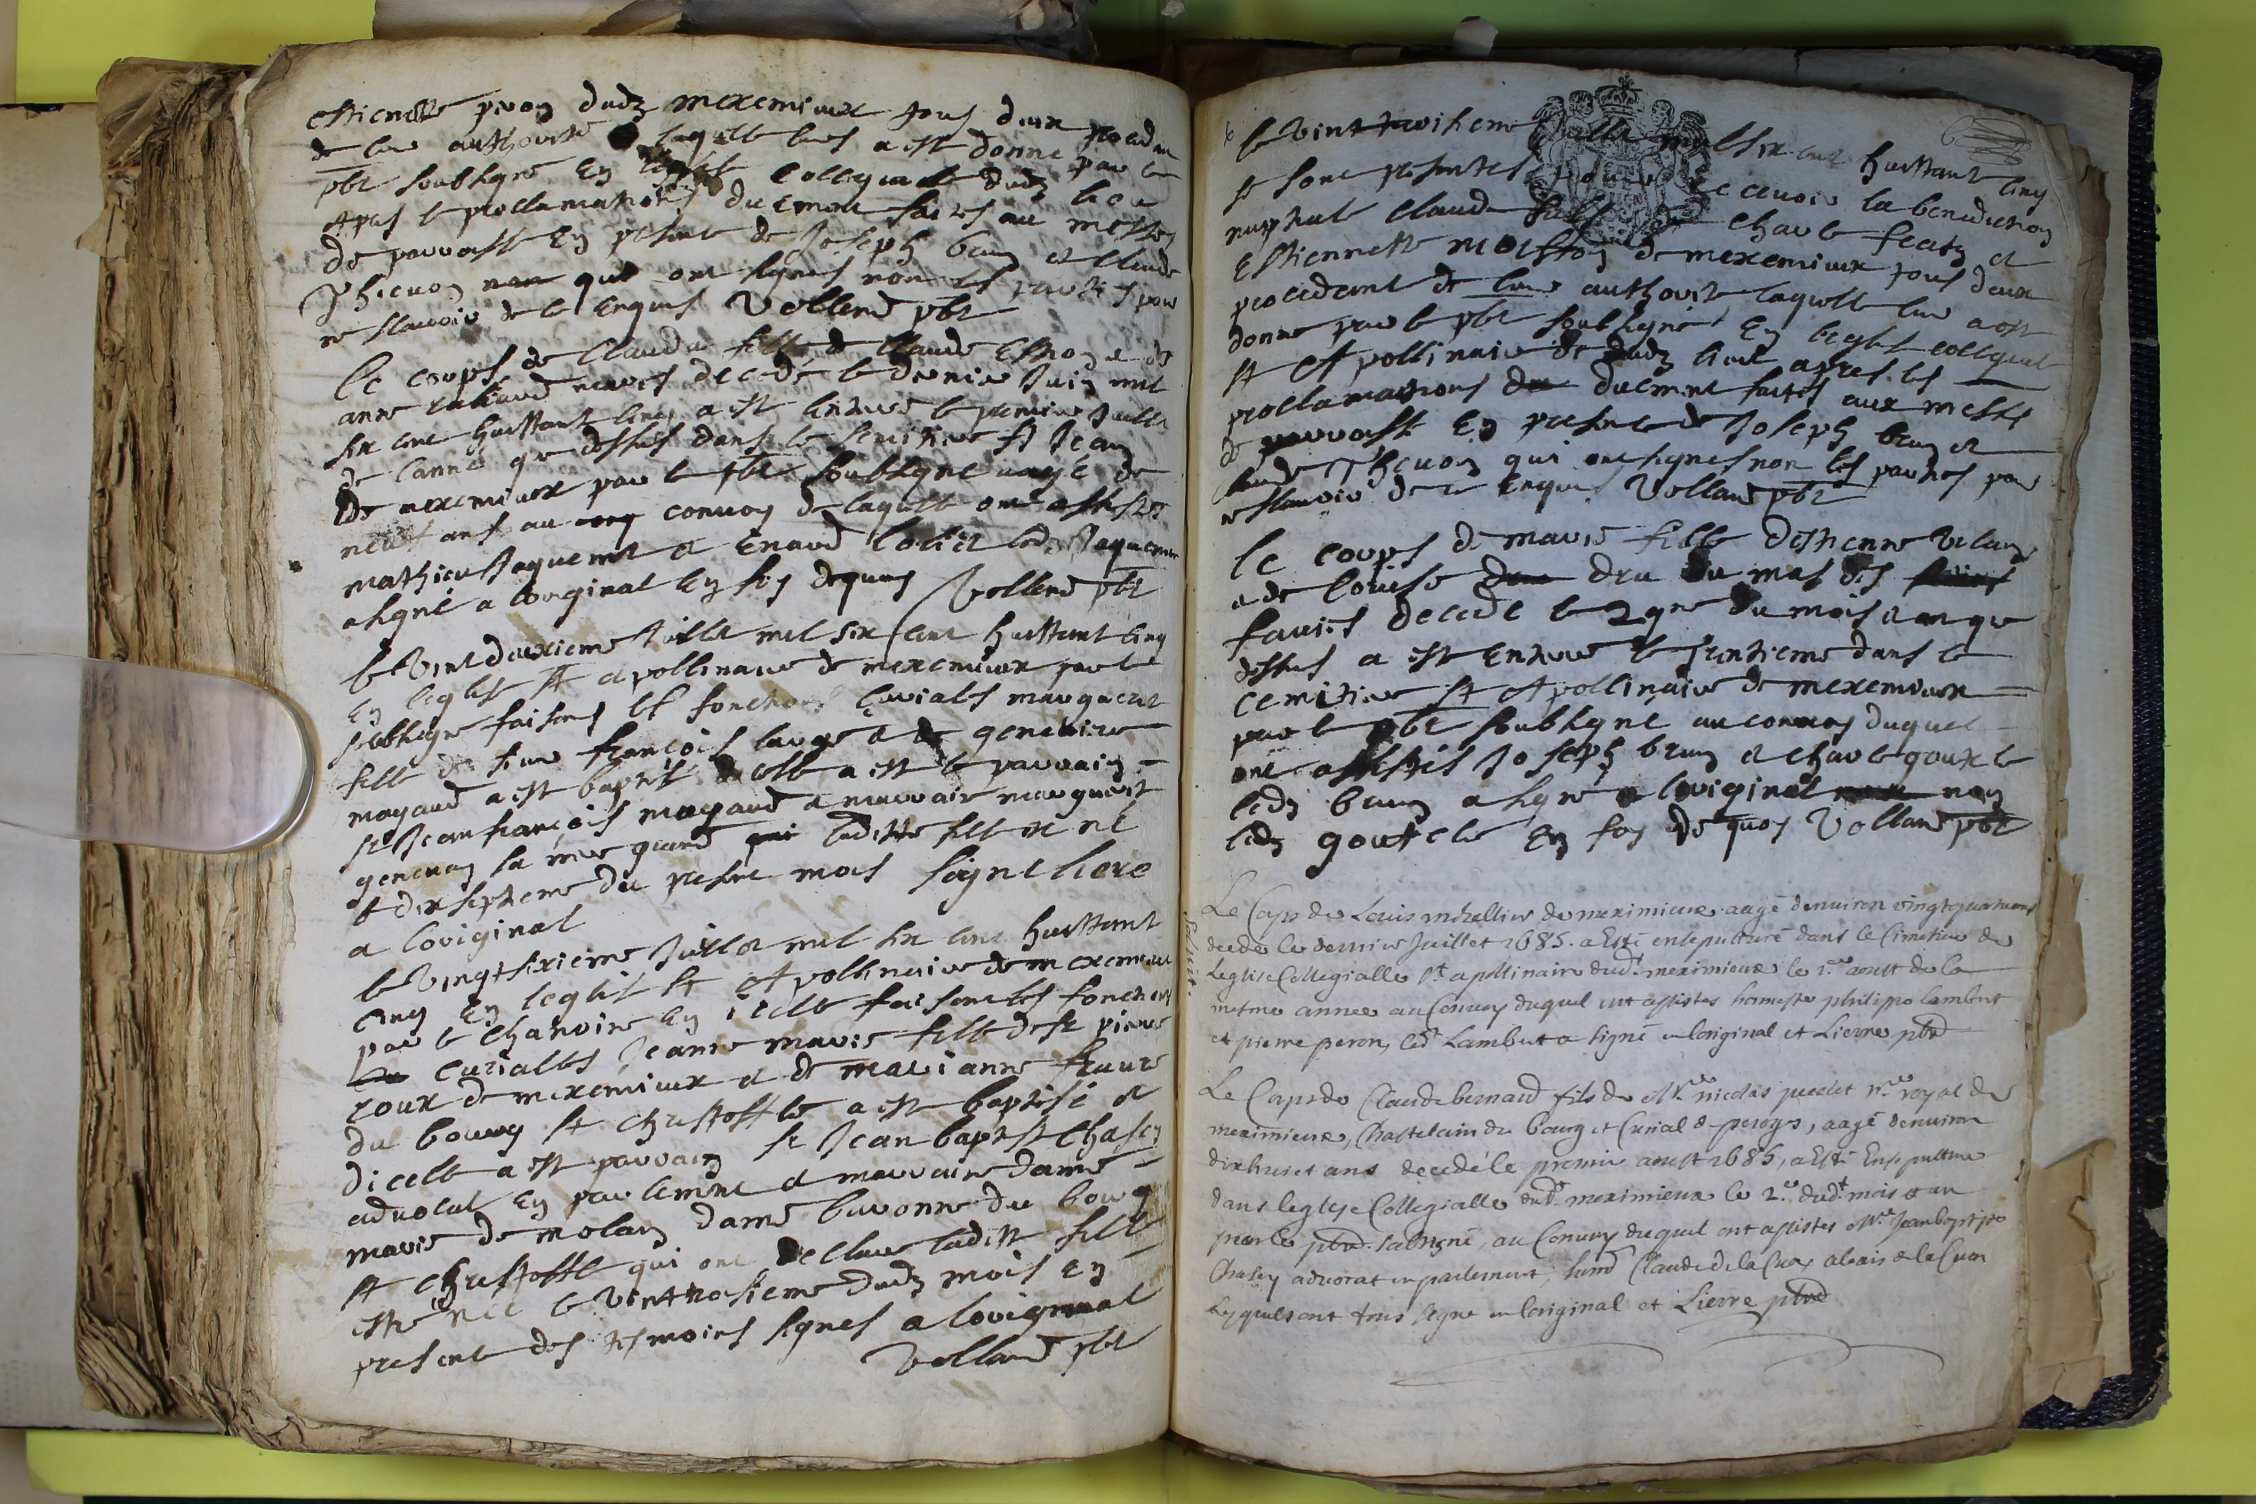 estiennette peron dudz meximieux tous deux procedant
de leur authorité laquelle leurs a est donné par le
pbr soubsigné En leglise Collegialle dudz lieu
Apres le proclamations duement faites au messes
de parroisse En presence de Joseph brun et Claude
Thievon non que ont signes non les parties pour
ne scavoir de le Enquis Volland pbr
le corps de Claudu fille de Claude
anne decede le dernier Juin mil
six cent huittant cinq a est Enterré le premier Juillet
de lanné que dessus dans le semitiere St Jean
de meximieux par le pbr soubsigne aagé de
neuf ans au convoy de laquelle ont assistés
mathieu Jaquemet et Enard ledz Jaquemet
a signé a loriginal En foy dequoy Volland pbr
le Vint deuxieme Juillet mil six cent huittant cinq
En leglise St apollinaire de meximieux par le
soubsigne faisant les fonctions Curiales marguerite
fille de sieur françois et de genevieve
mayaud a est baptise dicelle a est le parrain
Sr Jean françois mayaud a marraine marguerit
genevay sa mere grand ladite fille est né
le dix septieme du present mois signe liere
a loriginal
le Vingt sixieme Juillet mil six cent huittant
cinq En leglise St Apollinaire de meximieux
par le Chanoine En icelle faisant les fonctions
Curialles Jeanne marie fille de Sr pierre
roux de meximieux et de marianne
du bourg St Christofle a est baptisé et
dicelle a est parrain Sr Jean baptiste Chasey
advocat En parlement et marraine dame
marie de molan dame baronne du bourg
St Christofle qui ont declare ladite fille
estre née le Vint troisieme dudz mois En
presence des tesmoins signes a loriginal
Volland pbr
le Vint troisieme Juillet mil six cent huittant cinq
se sont presentes pour recevoir la benediction
nuptiale Claude fils de Charle et
Estiennette de meximieux tous deux
procedant de leur authorite laquelle leur a est
donne par le pbr soubsigné En leglise collegial
St Apollinaire de dudz lieu apres les
proclamations duement faites aux messes
de parroisse En presence de Joseph brun et
Claude Thevon qui ont signes non les parties par
ne scavoir de ce Enquis Volland pbr
le corps de marie fille destienne
et de louise dru du mas des
favies decede le 29me du mois et an que
dessus a est Enterre le trentieme dans le
cemitiere St Apollinaire de meximieux
par le pbr soubsigné au convoy duquel
ont assistés Joseph brun et Charle goutele
ledz brun a signé a loriginal non
ledz goutele En foy de quoy Volland pbr
Le Corps de Louis michellier de meximieux aagé denviron vingtquatre ans
decede le dernier Juillet 1685. a Esté ensepulturé dans le Cimetiere de
Leglise Collegialle St apollinaire dudt meximieux le 1er aoust de la
mesme annee au Convoy duquel ont assistes honneste philippe lambert
et pierre peron, ledt Lambert a signé en loriginal et Lierre pbre
Le Corps de Claude bernard fils de Mre nicolas no.re royal de
meximieux, Chastelain du bourg et Curial de peroges, aagé denviron
dixhuict ans decedé le premier aoust 1685, a Esté Ensepulture
dans leglise Collegialle dudt meximieux le 2e dudt mois et an
par le pbre. sousigné, au Convoy duquel ont assistes Mre Jean baptiste
Chasey advocat en parlement, Claude de la Crox alexis de la Cua
Lesquels ont tous signe en loriginal et Lierre pbre